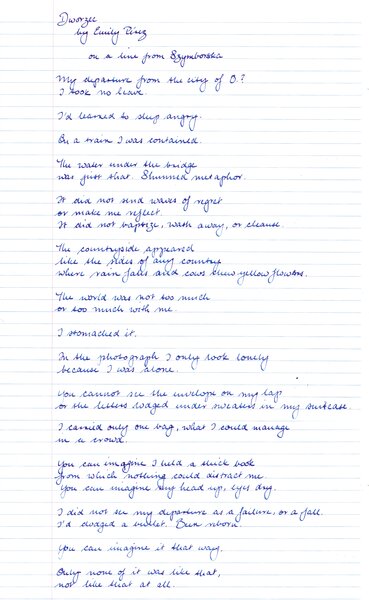 Dworzec
by Emily Pérez
on a line from Szymborska
My departure from the city of O.?
I took no leave.
I'd learned to sleep angry.
On a train I was contained.
The water under the bridge
was just that. Shunned metaphor.
It did not send waves of regret
or make me reflect.
It did not baptize, wash away, or cleanse.
The countryside appeared
like the sides of any country
where rain falls and cows chew yellow flowers.
The world was not too much
or too much with me.
I stomached it.
In the photograph I only look lonely
because I was alone.
You cannot see the envelope on my lap
or the letters wadged under sweaters in my suitcase.
I carried only one bag, what I could manage
in a crowd.
You can imagine I held a thick book
from which nothing could distract me.
You can imagine my head up, eyes dry.
I did not see my departure as a failure, or a fall.
I'd dodged a bullet. Been reborn.
You can imagine it that way.
Only none of it was like that,
not like that at all.